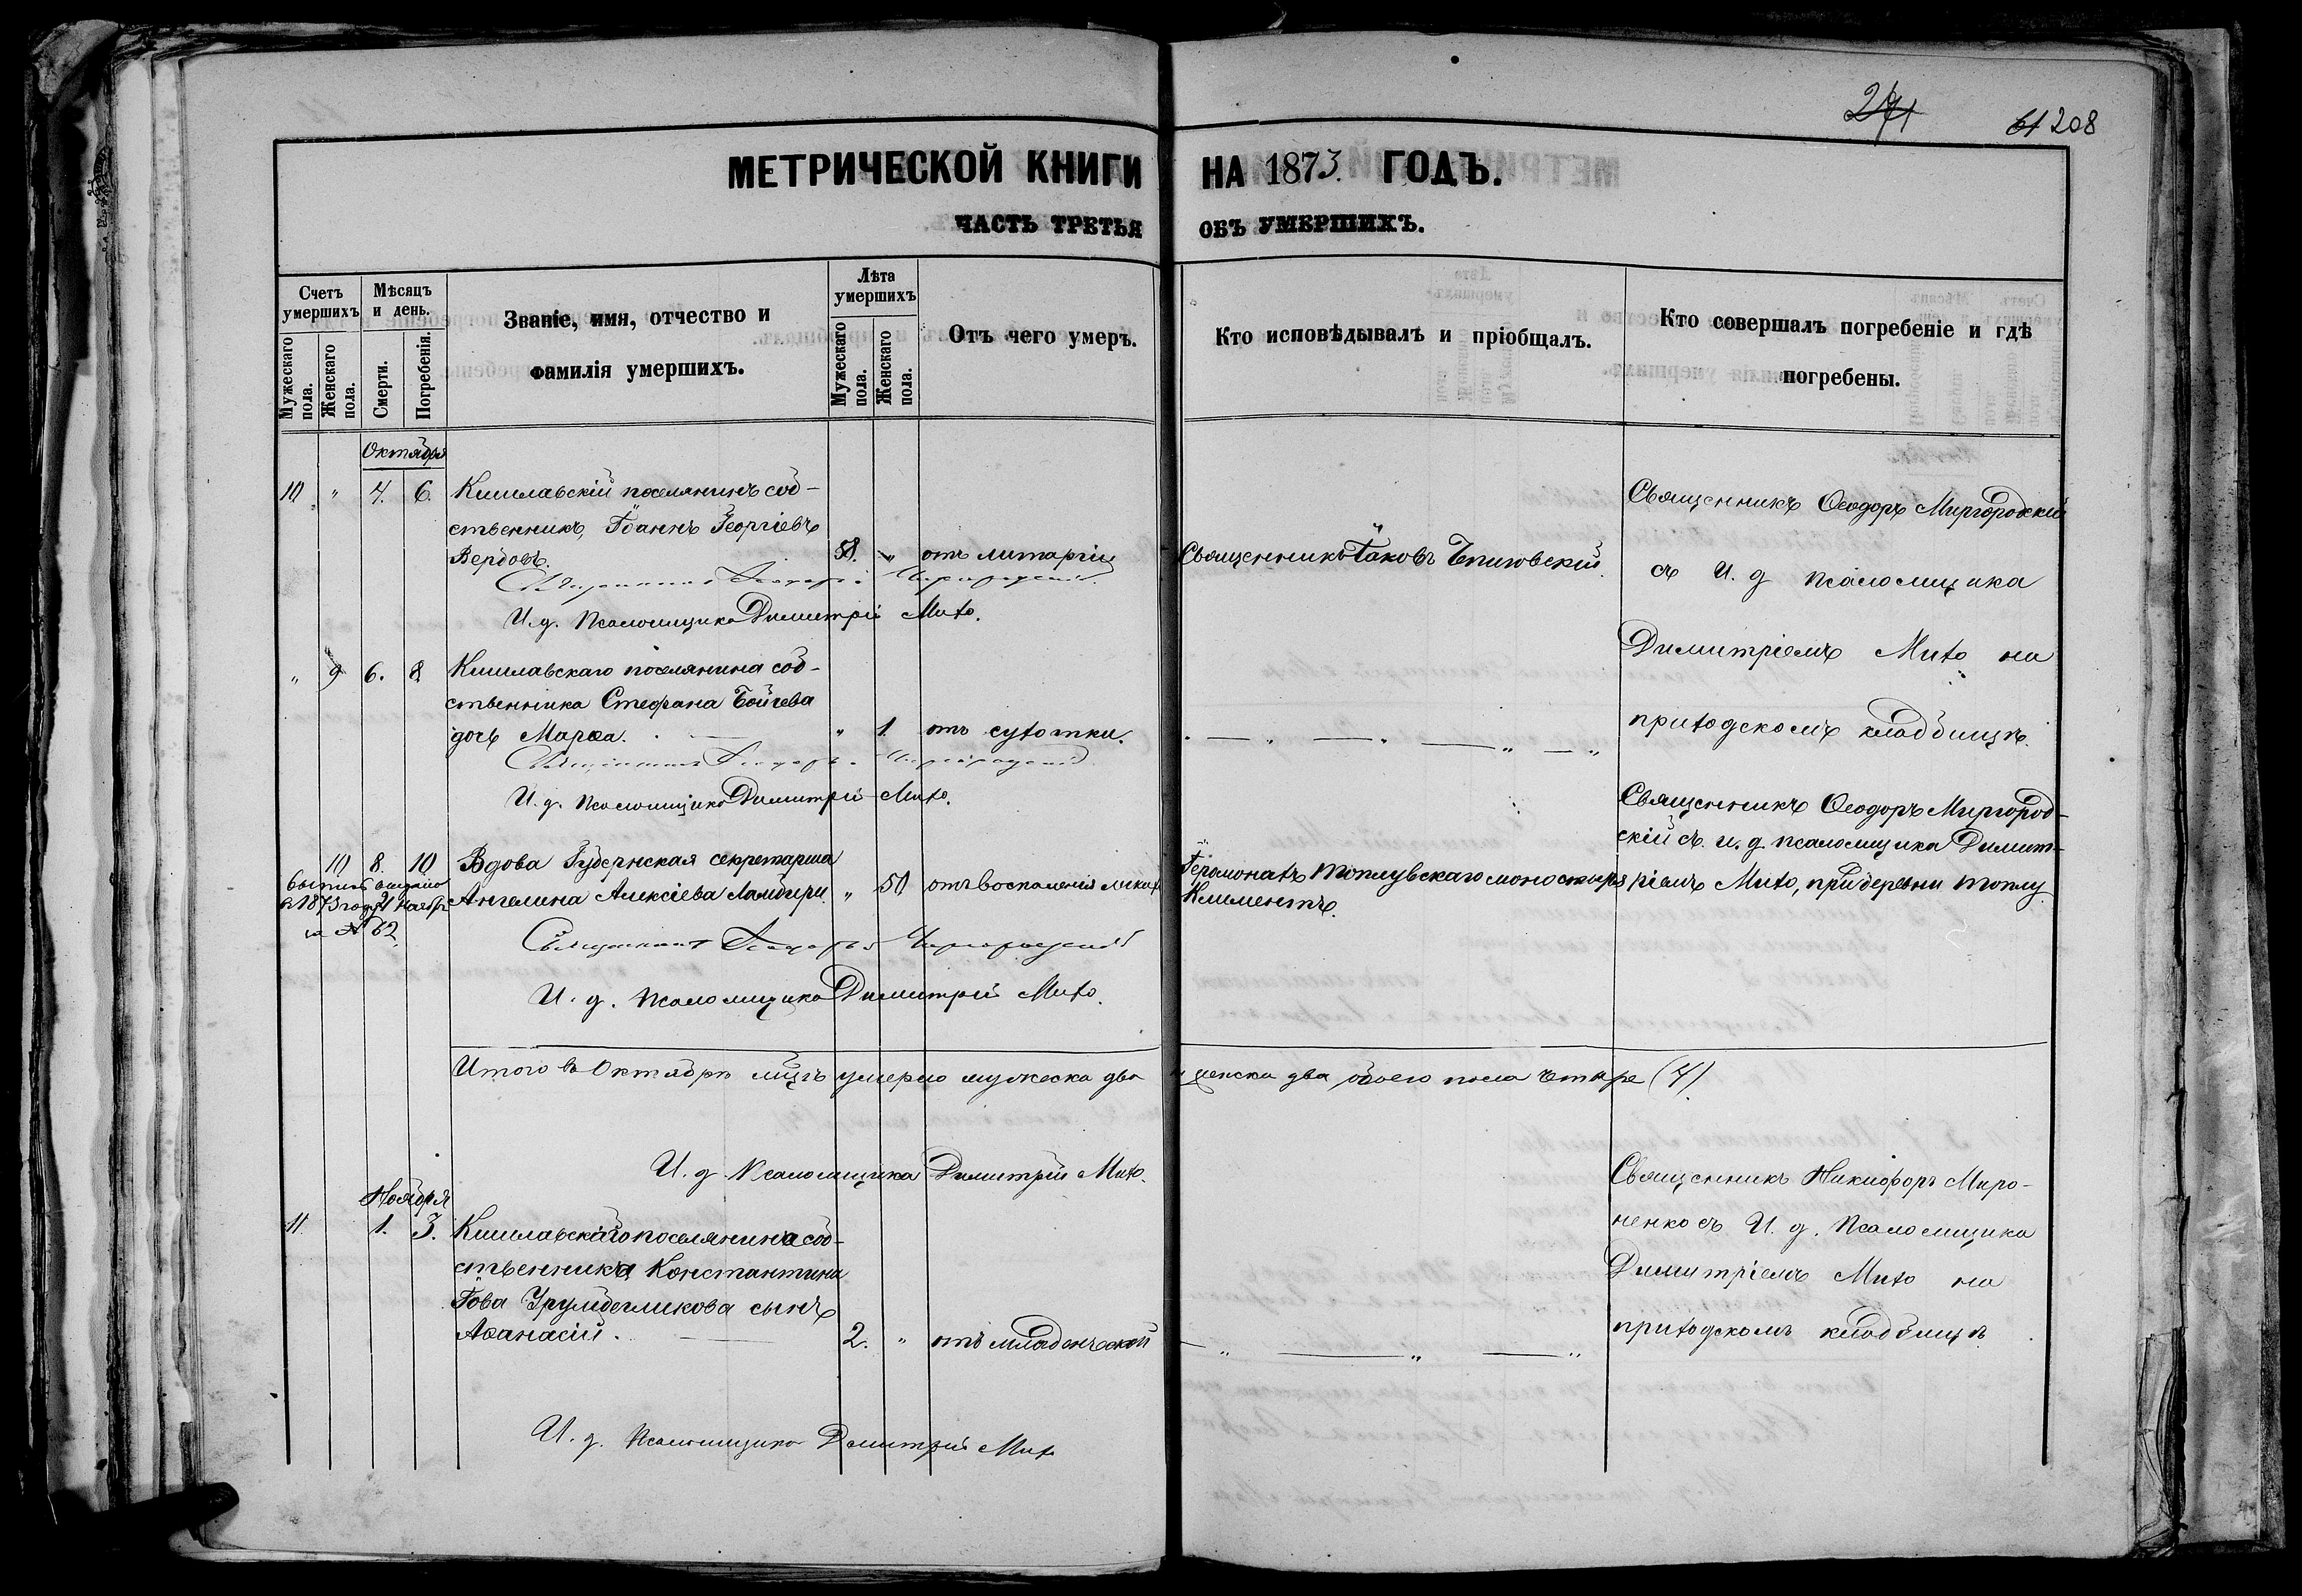 274
61 208
МЕТРИЧЕСКОЙ КНИГИ НА 1873. ГОДЪ.
ЧАСТЬ ТРЕТЬЯ ОБЪ УМЕРШИХЪ.
Счетъ умершихъ
Мужескаго пола.
Женскаго пола.
Мѣсяцъ и день.
Смерти.
Погребенія.
Званіе, имя, отчество и
фамилія умершихъ.
Лѣта умершихъ
Мужескаго пола.
Женскаго пола.
Отъ чего умеръ.
Кто исповѣдывалъ и пріобщалъ.
Кто совершалъ погребеніе и гдѣ
погребены.
Октября
10 " 4. 6. Кишлавскій поселянинъ соб-
ственникъ, Іоаннъ Георгіевъ
Вердовъ. 58. " отъ литаргіи
Священникъ Іаковъ
Священникъ Ѳеодоръ Миргородскій
съ И. д псаломщика
Димитріемъ Михо на
приходскомъ кладбищѣ.
Священникъ Ѳеодоръ Миргородскій
И. д. Псаломщика Димитрій Михо.
" 9 6. 8 Кишлавскаго поселянина соб-
ственника Стефана Бойчева
дочь Марѳа. " 1. отъ сухотки.
Священникъ Ѳеодоръ Миргородскій
И. д. Псаломщика Димитрій Михо.
10 8. 10 Вдова Губернская секретарша
Ангелина Алексіева Ламбири " 50 отъ воспаленія легкихъ
в 1873 году Ноябр
за № 62.
Іеромонахъ Топлувскаго монастыря
Климентъ.
Священникъ Ѳеодоръ Миргород-
скій съ и. д. псаломщика Димит-
ріемъ Михо, при деревни Топлу.
Священникъ Ѳеодоръ Миргородскій
И. д. Псаломщика Димитрій Михо.
Итого въ Октябрѣ мцѣ умерло мужеска два и женска два обоего пола четыре (4).
И. д. Псаломщика Димитрій Михо.
Ноября
11. 1. 3. Кишлавскаго поселянина соб-
ственника Константина
Іова сынъ
Аѳанасій. 2. " отъ младенческой
Священникъ Никифоръ Миро-
ненко съ И. д. Псаломщика
Димитріемъ Михо на
приходскомъ кладбищѣ.
И. д. Псаломщика Димитрій Михо